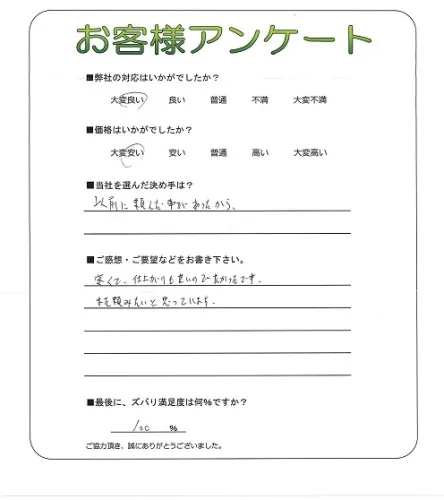 お客様アンケート
■弊社の対応はいかがでしたか？
大変良い 良い 普通 不満 大変不満
■価格はいかがでしたか？
大変安い 安い 普通 高い 大変高い
■当社を選んだ決め手は？
以前に頼んだ事があったから、
■ご感想・ご要望などをお書き下さい。
安くて、仕上がりも良いので良かったです。
を頼みたいと思っています。
■最後に、ズバリ満足度は何%ですか？
100 %
ご協力頂き、誠にありがとうございました。